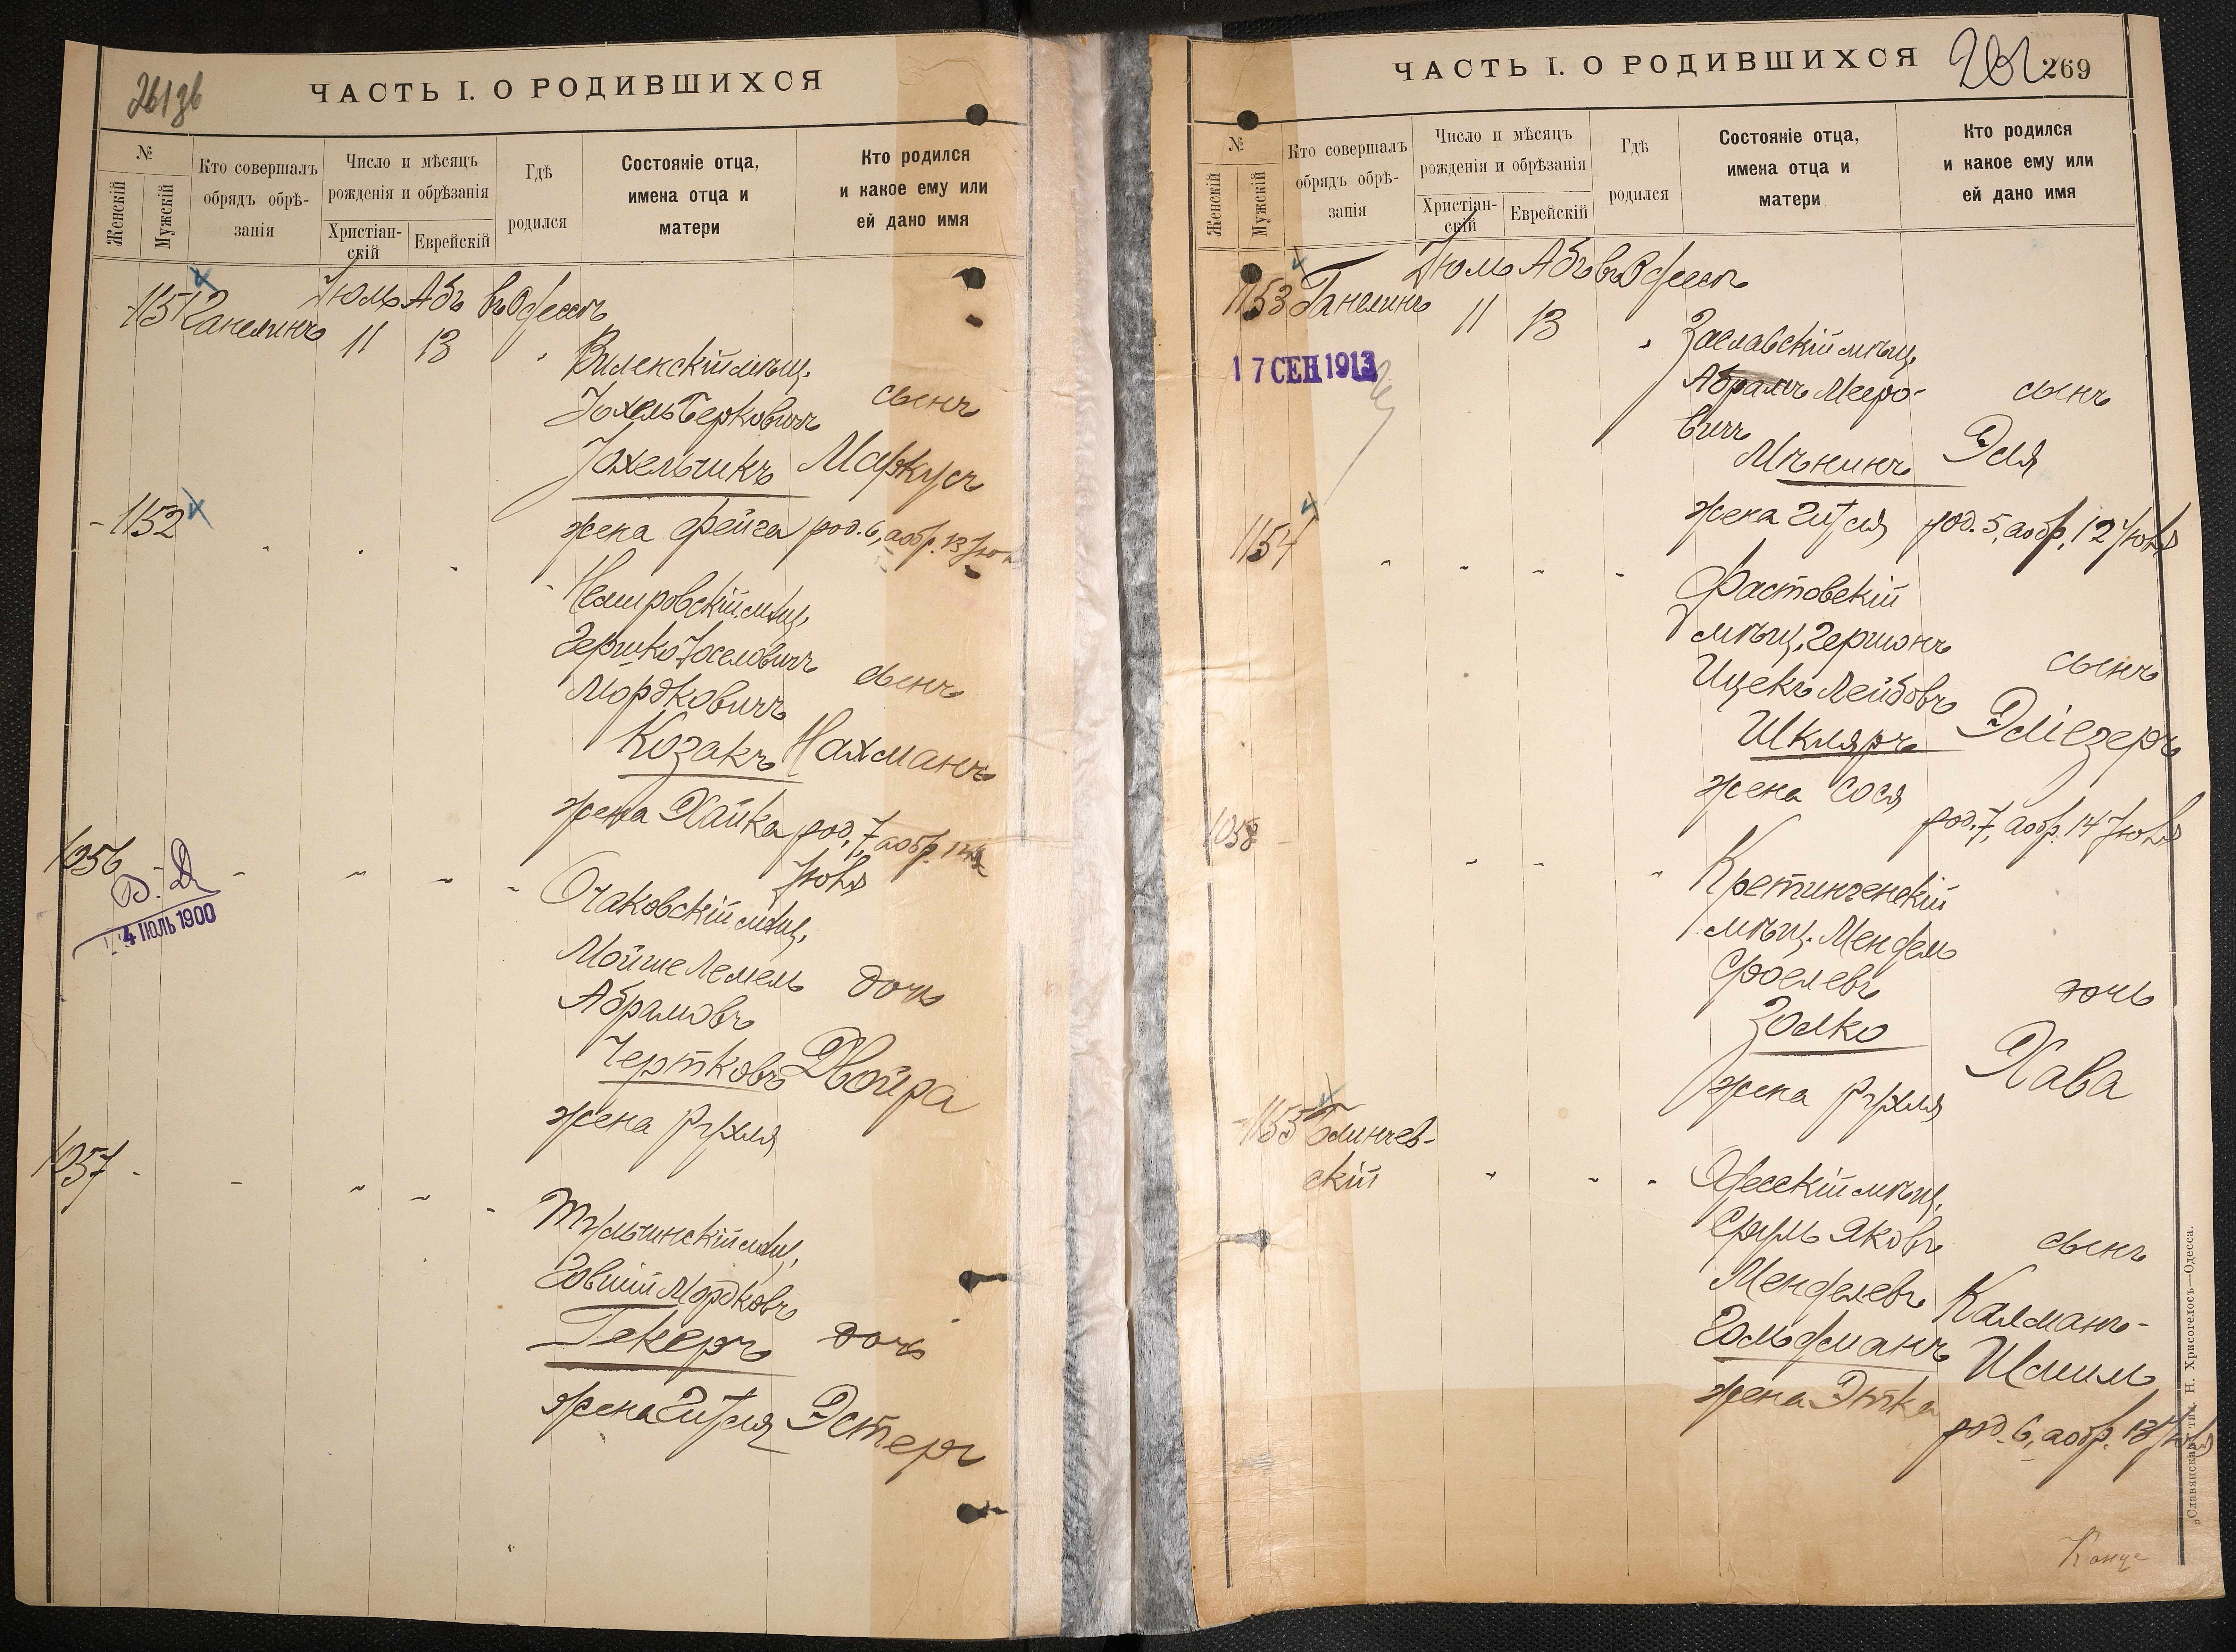 261 зв
ЧАСТЬ I. О РОДИВШИХСЯ
№
Женскій
Мужскій
Кто совершалъ
обрядъ обрѣ-
занія
Число и мѣсяцъ
рожденія и обрѣзанія
Христіан-
скій
Еврейскій
Гдѣ
родился
Состояніе отца,
имена отца и
матери
Кто родился
и какое ему или
ей дано имя
Іюль Абъ въ Одессѣ
1151 Ганелинъ 11 13
Виленскій мѣщ.
Іохель Берковичъ сынъ
Іохельчикъ Маркусъ
жена Фейга род. 6, а обр. 13 Іюля
1152
Немировскій мѣщ.
Гершко Іоселовичъ
Мордковичъ сынъ
Козакъ Нахманъ
жена Хайка род. 7, а обр. 14
Іюля
1056
4 ІЮЛЬ 1900
Очаковскій мѣщ.
Мойше Лемель дочь
Абрамовъ
Чертковъ Двойра
жена Рухля
1057
Тульчинскій мѣщ.
Овшій Мордковъ
Гекеръ дочь
жена Гитля Эстеръ
ЧАСТЬ I. О РОДИВШИХСЯ
262 269
№
Женскій
Мужскій
Кто совершалъ
обрядъ обрѣ-
занія
Число и мѣсяцъ
рожденія и обрѣзанія
Христіан-
скій
Еврейскій
Гдѣ
родился
Состояніе отца,
имена отца и
матери
Кто родился
и какое ему или
ей дано имя
Іюль Абъ въ Одессѣ
1153 Ганелинъ 11 13
17 СЕН 1913
Заславскій мѣщ.
Абрамъ Мееро- сынъ
вичъ
Мѣнинъ Эля
жена Гитля род. 5, а обр. 12 Іюля
1154
Фастовскій
мѣщ. Гершонъ
Ицекъ Лейбовъ сынъ
Шкляръ Эліезеръ
жена Сося
род. 7, а обр. 14 Іюля
1058
Кретингенскій
мѣщ. Мендель
Сроелевъ дочь
Золко
Хава
жена Рухля
1155 Блинчев-
скій
Одесскій мѣщ.
Сруль Яковъ сынъ
Менделевъ Калманъ-
Гольдманъ Шмиль
жена Этка
род. 6, а обр. 13 Іюля
„Славянская“ тип. Н. Хрисогелосъ.—Одесса.